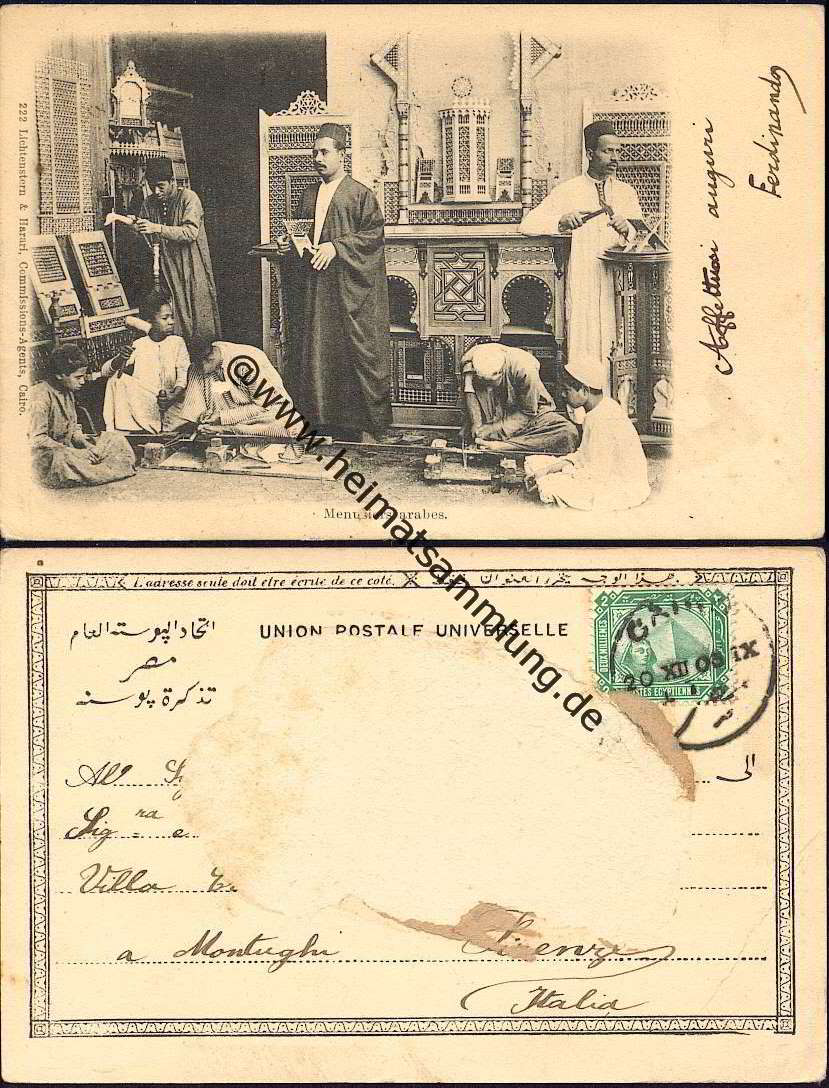 222 Lichtenstern & Harari, Commissions-Agents, Cairo.
Affettuosi auguri
Ferdinando
Menuisiers arabes.
@www.heimatsammlung.de
L'adresse seule doit etre écrite de ce coté.
هذا الوجه يحرر العنوان
اتحاد البوسته العام
UNION POSTALE UNIVERSELLE
مصر
تذكرة بوسته
CAIR
20 XII 05 IX
POSTES EGYPTIENNES
Al
الى
Sig.ra e
Villa
a Montughi Firenze
Italia